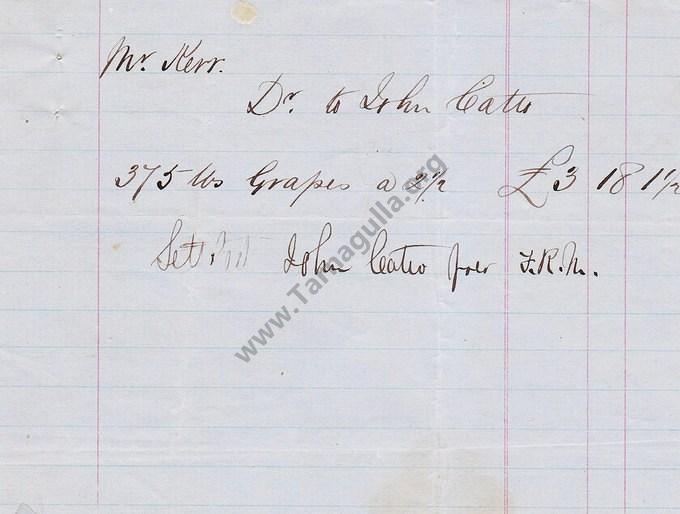 Mr. Kerr.
Dr. to John Catto
375 lbs Grapes a 2½ £3 18 1½
John Catto per F.R.M.
www.Tarnagulla.org